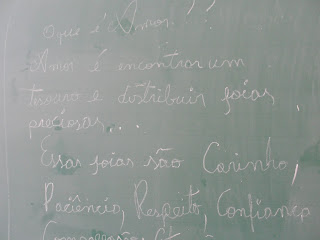 O que é Amor!!!
Amor é encontrar um
tesouro e distribuir joias
preciosas...
Essas joias são Carinho,
Paciência, Respeito, Confiança